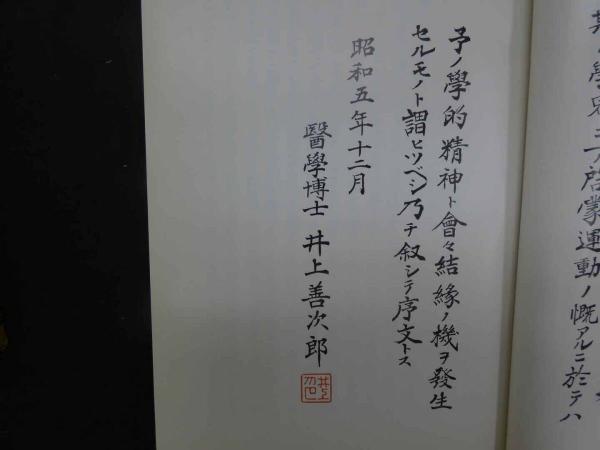 其ノ學界ニ啓蒙運動ノ慨アルニ於テハ
予ノ學的精神ト會々結緣ノ機ヲ發生
セルモノト謂ヒツベシ乃チ叙シテ序文トス
昭和五年十二月
醫學博士 井上善次郎